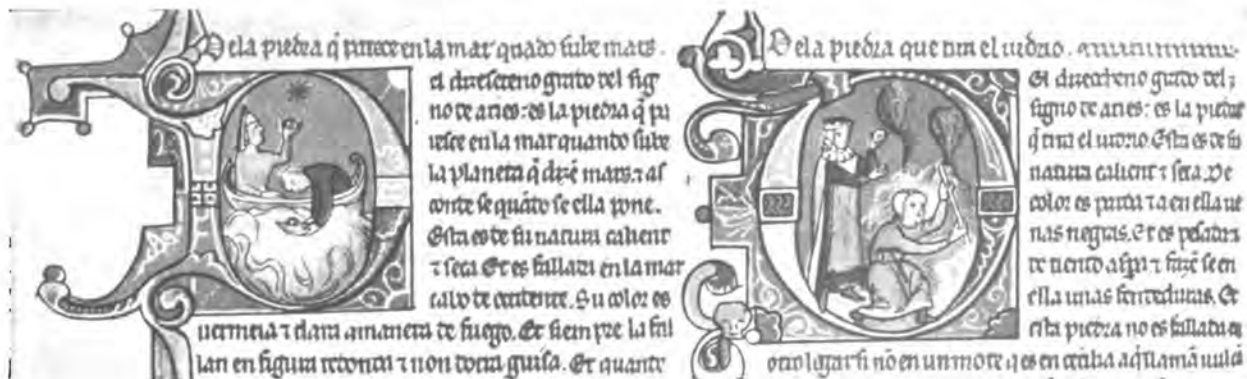 De la piedra q̃ parece en la mar quãdo sube mars.
el grado del sig
no de aries: es la piedra q̃ pa
resce en la mar quando sube
la planeta q̃ dizẽ mars. ⁊ as
conde se quãdo se ella pone.
Esta es de su natura calient
⁊ seca Et es fallada en la mar
cabo de Su color es
uermeia ⁊ clara amanera de fuego. Et siempre la fal
lan en figura redonda ⁊ non dotra guisa. Et quando
De la piedra que tira el uidrio.
El grado del
signo de aries: es la piedra
q̃ tira el uidrio. Esta es de su
natura calient ⁊ seca. De
color es parda ⁊ a en ella ue
nas negras. Et es pesada
de tiento ⁊ fazẽ se en
ella unas fendeduras. Et
esta piedra no es fallada en
otro lugar si nõ en un mõte q es en